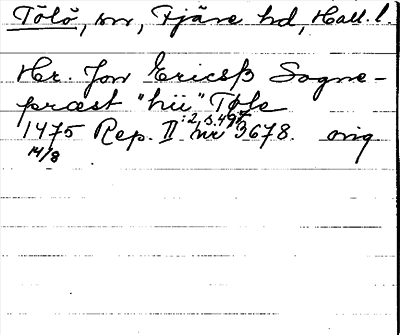 Tölö, sn, Fjäre hd, Hall. l.
Hr. Jon Ericsß Sogne-
præst "hii" Tøle
1475 Rep. II:2, s. 497 nr 3678. orig
14/8